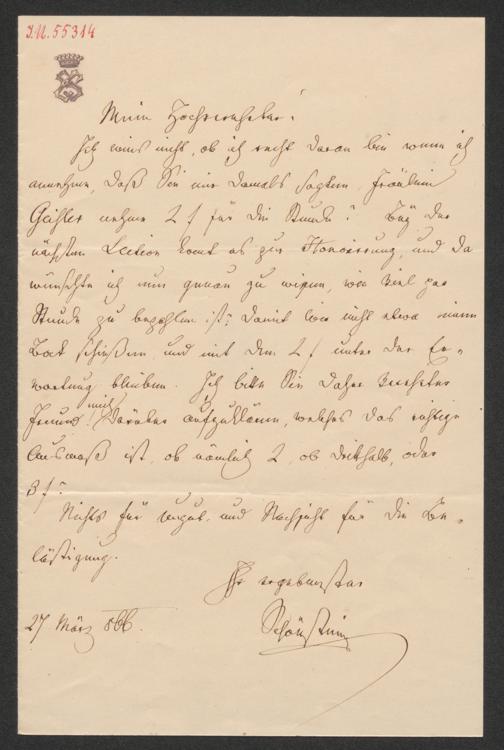 I.N. 55314
Mein Hochverehrter!
Ich weis nicht, ob ich recht daran bin wenn ich
annehme, daß Sie mir damals sagten, Fräulein
Gahler nehme 2 f für die Stunde? Bey der
nächsten Lection komt es zur Honorirung, und da
wünschte ich nun genau zu wißen, wie viel per
Stunde zu bezahlen ist? Damit wir nicht etwa einen
Bock schießen, und mit den 2 f unter der Er-
wartung bleiben. Ich bitte Sie daher verehrter
Freund mich darüber aufzuklären, welches das richtige
Ausmaß ist, ob nämlich 2, ob dritthalb, oder
3 f?
Nichts für ungut, und Nachsicht für die Be-
lästigung.
Ihr ergebenster
Schönstein
27 März 866.